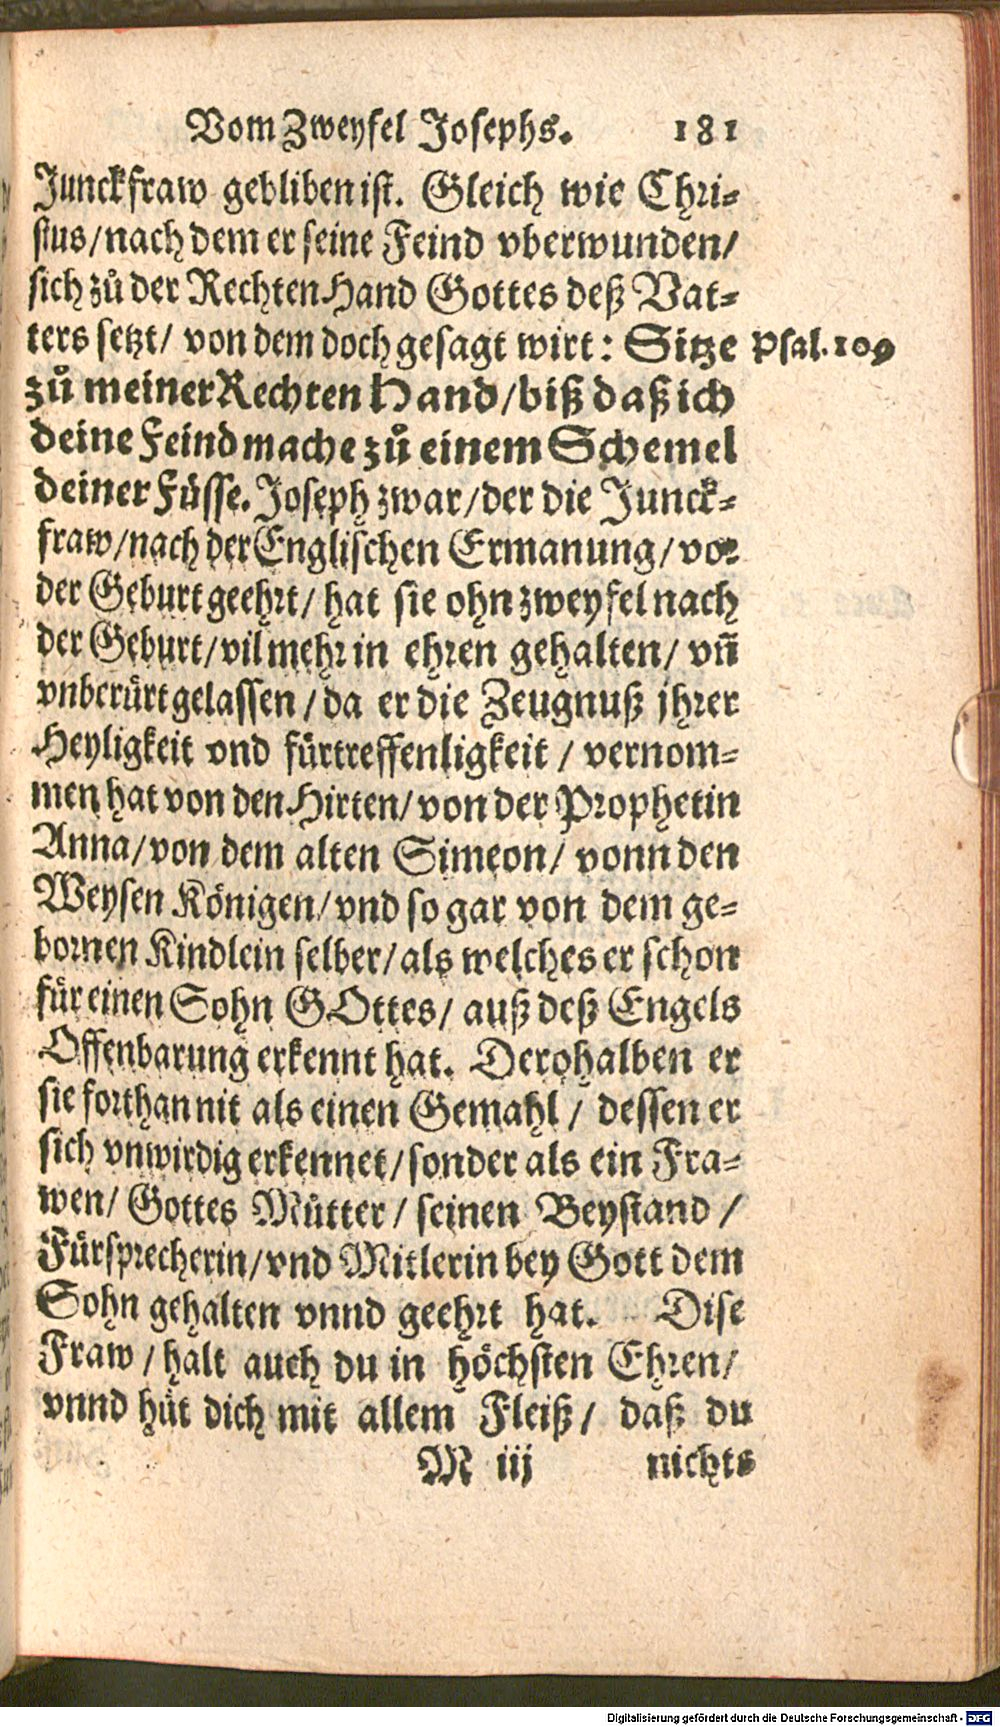 Vom Zweyfel Josephs. 181
Junckfraw gebliben ist. Gleich wie Chri-
stus/ nach dem er seine Feind vberwunden/
sich zů der Rechten Hand Gottes deß Vat-
ters setzt/ von dem doch gesagt wirt: Sitze Psal. 109
zů meiner Rechten Hand/ biß daß ich
deine Feind mache zů einem Schemel
deiner Füsse. Joseph zwar/ der die Junck-
fraw/ nach der Englischen Ermanung/ vor
der Geburt geehrt/ hat sie ohn zweyfel nach
der Geburt/ vil mehr in ehren gehalten/ vñ
vnberürt gelassen/ da er die Zeugnuß jhrer
Heyligkeit vnd fürtreffenligkeit/ vernom-
men hat von den Hirten/ von der Prophetin
Anna/ von dem alten Simeon/ vonn den
Weysen Königen/ vnd so gar von dem ge-
bornen Kindlein selber/ als welches er schon
für einen Sohn GOttes/ auß deß Engels
Offenbarung erkennt hat. Derohalben er
sie forthan nit als einen Gemahl/ dessen er
sich vnwirdig erkennet/ sonder als ein Fra-
wen/ Gottes Mütter/ seinen Beystand/
Fürsprecherin/ vnd Mitlerin bey Gott dem
Sohn gehalten vnnd geehrt hat. Dise
Fraw/ halt auch du in höchsten Ehren/
vnnd hüt dich mit allem Fleiß/ daß du
M iij nichts
Digitalisierung gefördert durch die Deutsche Forschungsgemeinschaft - DFG